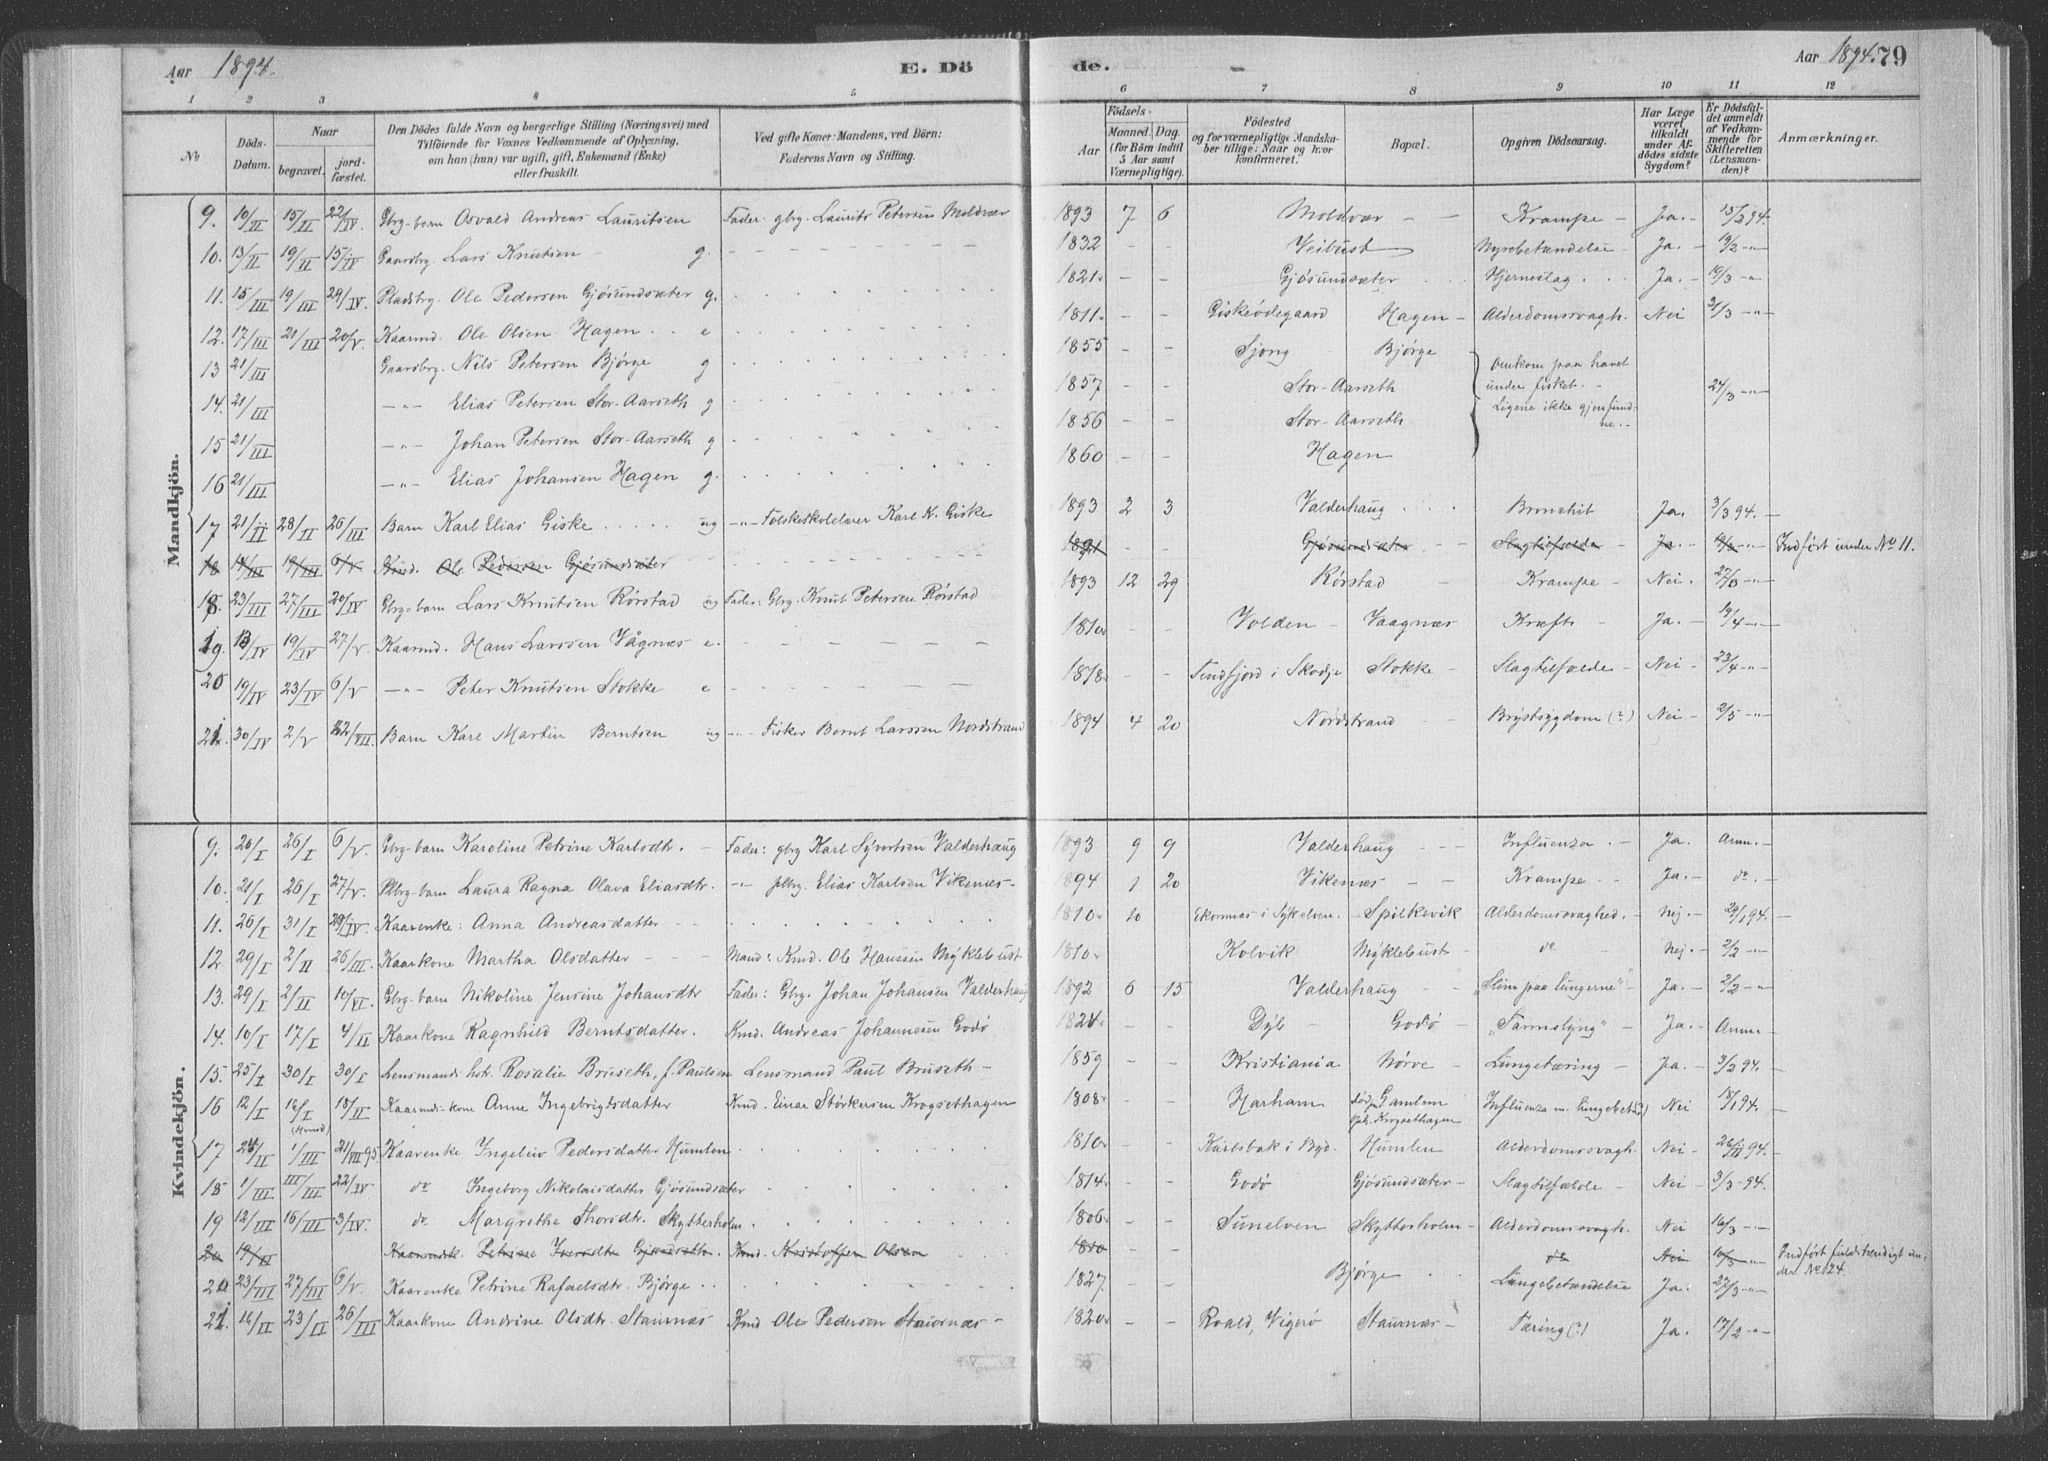 Aar 1894. E. Dö de. Aar 1894. 79
1 2 3 4 5 6 7 8 9 10 11 12
No
Döds-Datum.
Naar
begravet.
jord-fæstet.
Den Dödes fulde Navn og borgerlige Stilling (Næringsvei) med
Tilföiende for Voxnes Vedkommende af Oplysning,
om han (hun) var ugift, gift, Enkemand (Enke)
eller fraskilt.
Ved gifte Koner: Mandens, ved Börn:
Faderens Navn og Stilling.
Födsels-
Aar
Maaned. Dag.
(for Börn indtil
5 Aar samt
Værnepligtige).
Födested
og for værnepligtige Mandska-
ber tillige: Naar og hvor
konfirmeret.
Bopæl.
Opgiven Dödsaarsag.
Har Læge
været
tilkaldt
under Af-
dödes sidste
Sygdom?
Er Dödsfal-
det anmeldt
af Vedkom-
mende for
Skifteretten
(Lensman-
den)?
Anmærkninger.
Mandkjön.
9. 10/II 15/II 22/IV. Gbrg-barn Osvald Andreas Lauritsen Fader: gbrg. Laurits Petersen Moldvær 1893 7 6 Moldvær - - Krampe - Ja. - 15/2 94.
10. 13/II 19/II 15/IV Gaardbrg. Lars Knutsen - g. - 1832 - - Veibust Nyrebetændelse - Ja. - 19/2 -"-
11. 15/III 19/III 29/IV. Pladsbrg. Ole Pedersen Gjøsundsæter g. 1821. - - Gjøsundsæter Hjerneslag Ja. - 19/3 -"-
12. 17/III 21/III 20/V. Kaarmd. Ole Olsen Hagen . . e 1811. - - Giskeødegaard Hagen - Alderdomssvagh. Nei 21/3 -"-
13 21/III Gaardbrg. Nils Petersen Bjørge g 1855 - - Sjong Bjørge Omkom paa havet
14. 21/III -"- Elias Petersen Stor-Aarseth g 1857 - - Stor-Aarseth under fisket. - 24/3 -"-
15 21/III -"- Johan Petersen Stor-Aarseth g 1856 - - Stor-Aarseth Ligene ikke gjenfund-
ne. -
16 21/III -"- Elias Johansen Hagen g. 1860 - - Hagen
17 21/II 28/II 26/III Barn Karl Elias Giske . . . . . ug -"- Folkeskolelærer Karl K. Giske 1893 2 3 Valderhaug . . . Bronchit Ja. 3/3 94. -
18 14/III 19/III 6/V Kmd. Ole Pedersen Gjøsundsæter 1821 - - Gjøsundsæter Slagtilfælde Ja - 19/3 -"- Indført under No 11.
18. 23/III 27/III 20/IV Gbrg-barn Lars Knutsen Rørstad ug Fader: Gbrg. Knut Petersen Rørstad 1893 12 29 Rørstad - Krampe - Nei. 27/3 -"-
19. 13/IV 19/IV 27/V. Kaarmd. Hans Larssen Vågnæs e. 1810. - - Volden - Vaagnæs Kræft - Ja. - 19/4 -"-
20 19/IV 23/IV 6/V -"- Peter Knutsen Stokke e 1818. - - Tennfjord i Skodje Stokke - Slagtilfælde - Nei - 23/4 -"-
21. 30/IV 2/V 22/VII. Barn Karl Martin Berntsen ug -"- Fisker Bernt Larssen Nordstrand 1894 4 20 Nordstrand - Brystsygdom (?) Nei - 2/5 -"-
Kvindekjön.
9. 20/I 26/I 6/V. Gbrg-barn Karoline Petrine Karlsdtr. - Fader: gbrg Karl Sivertsen Valderhaug 1893 9 9 Valderhaug - - - Influenza . - Ja. Anm. -
10. 21/I 26/I 27/V. Plbrg-barn Laura Ragna Olava Eliasdtr. -"- plbrg. Elias Karlsen Vikenæs - 1894 1 20 Vikenæs - - Krampe - Ja. - do. -
11. 26/I 31/I 29/IV. Kaarenke: Anna Andreasdatter - - 1810. 10 Ekornnæs i Sykelven. - Spilkevik Alderdomssvaghed. - Nej. - 29/1 94. -
12 29/I 2/II 26/III. Kaarkone Martha Olsdatter - - - Mand: Kmd. Ole Hanssen Myklebust 1810. Kolvik Myklebust - do - Nej. - 2/2 -"-
13. 29/I 2/II 10/VI. Gbrg-barn Nikoline Jensine Johansdtr Fader: Gbrg. Johan Johansen Valderhaug 1892 6 15 Valderhaug - - "Slim paa lungerne" - Ja. - 2/2 -"-
14. 10/I 17/I 4/II Kaarkone Ragnhild Berntsdatter. Kmd. Andreas Johannesen Godø 1824. - - Dyb - Godø - "Tarmslyng" - Ja - Anm -
15. 25/I 30/I 30/I Lensmands hstr. Rosalie Bruseth, f. Paulsen Lensmand Paul Bruseth - 1859 - - Kristiania Nørve - Lungetæring - Ja. - 3/2 94. -
16 12/I 16/I (Hrmd) 18/II Kaarmds-kone Anne Ingebrigtsdatter Kmd. Einar Størkersen Krogsethagen 1808. - - Harham død paa Gamlem
oph. Krogsethagen Influenza m. lungebet. Nei 18/1 94. -
17 24/II 1/III 21/VII 95 Kaarenke Ingeleiv Pedersdatter Humlen 1810. - - Karlsbak i Byd. Humlen Alderdomssvagh. Nei - 26/II 94. -
18 1/III III/III 22/IV do Ingeborg Nikolaisdatter Gjøsundsæter 1814. - - Godø Gjøsundsæter - Slagtilfælde - Nei - 3/3 - 94.
19 12/III 16/III 3/IV. do Margrethe Thorsdtr. Skytterholm. 1806. - - Sunelven Skytterholm - Alderdomssvagh. Nei 16/3 -"-
20 19/II Petrine Kmd. Kristoffer Olsen 1810 - - do Nei 10/3 " Indført fuldstændigt un-
der No 24.
20 23/III 27/III 6/V. Kaarenke Petrine Rafaelsdtr. Bjørge . . 1827. - - Bjørge . . Lungebetændelse Ja. - 27/3 -"-
21. 16/II 23/II 26/III Kaarkone Andrine Olsdtr. Staurnæs Kmd Ole Pedersen Staurnæs - 1820. - - Roald, Vigerø Staurnæs - Tæring (?) Ja. 17/2 -"-